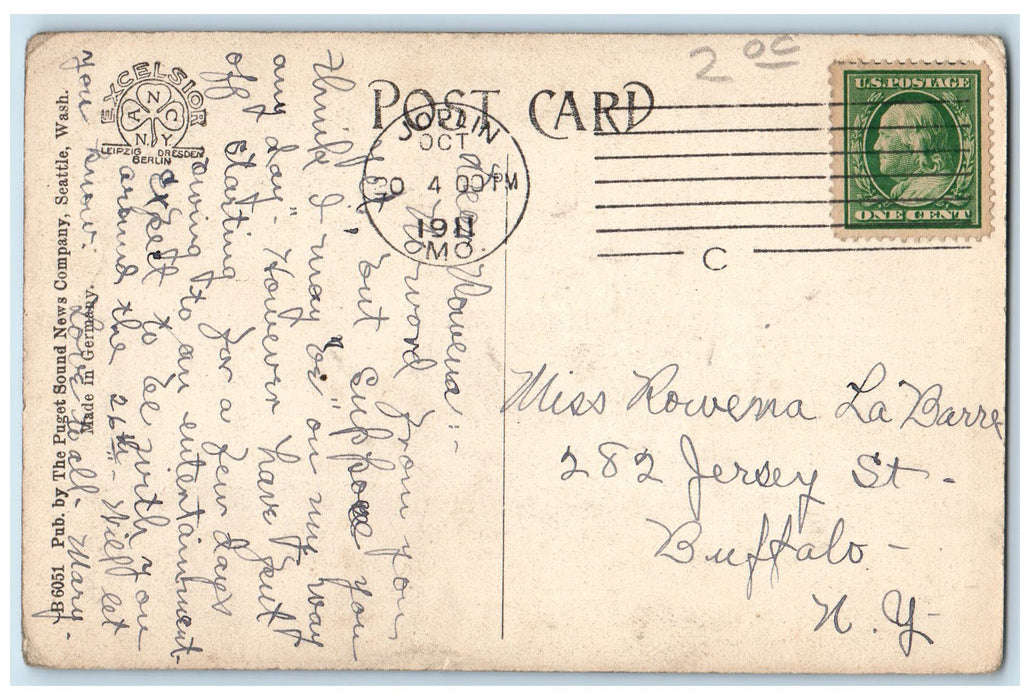 2 oc
POST CARD
U.S. POSTAGE
ONE CENT
JOPLIN
OCT
20 4 00 PM
1911
MO.
C
EXCELSIOR
ANCNY
LEIPZIG DRESDEN
BERLIN
B 6051 Pub. by The Puget Sound News Company, Seattle, Wash.
Made in Germany.
Dear Rowena:-
No word from you
yet, but suppose you
think I may be "on my way
any day". However have put
off starting for a few days
owing to an entertainment.
expect to be with you
around the 26th - Will let
you know.
Love to all. Mary-
Miss Rowena La Barre
282 Jersey St -
Buffalo -
N. Y-